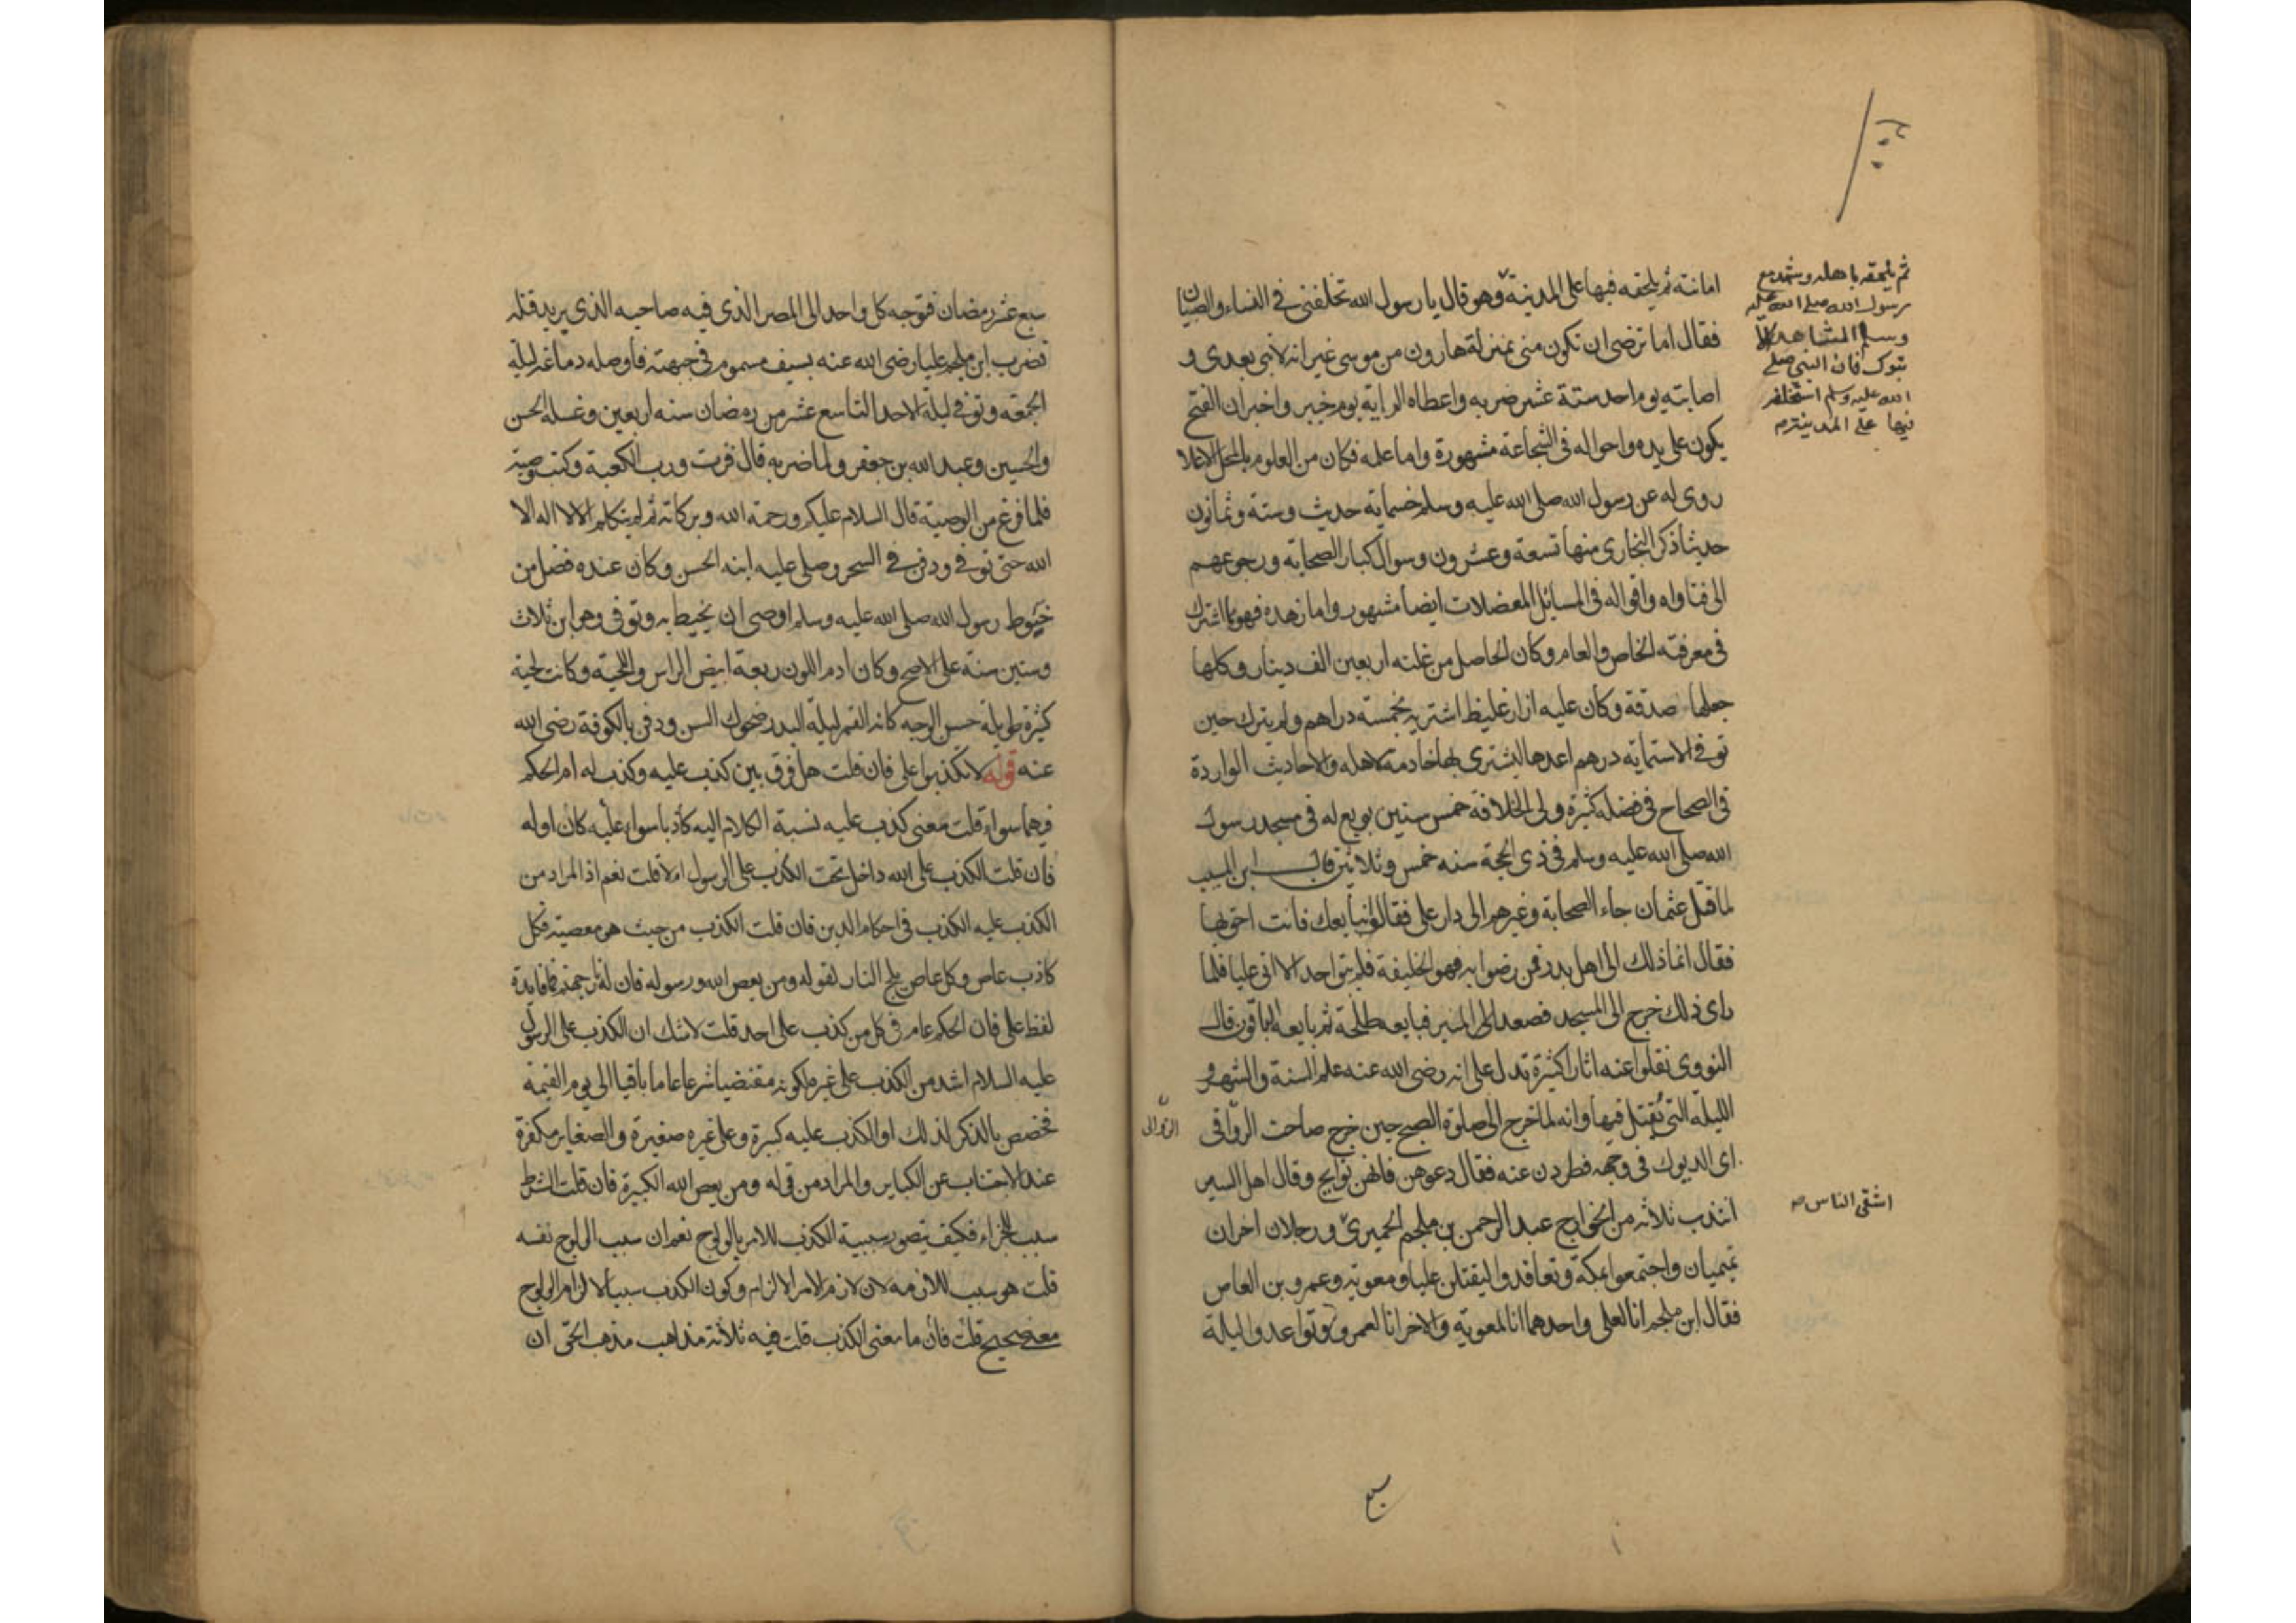 ثم يلحقه باهله وشهد مع
رسول الله صلى الله عليه
وسلم المشاهد الا
تبوك فان النبي صلى
الله عليه وسلم استخلفه
فيها على المدينة
امانته ثم يلحقه فيها على المدينة وهو قال يا رسول الله تخلفني في النساء والصبيان
فقال اما ترضى ان تكون مني بمنزلة هارون من موسى غير انه لا نبي بعدي و
اصابته يوم احد ستة عشر ضربه واعطاه الراية يوم خيبر واخبر ان الفتح
يكون على يده واحواله في الشجاعة مشهورة واما علمه فكان من العلوم بالمحل الاعلا
روى له عن رسول الله صلى الله عليه وسلم خسماية حديث وستة وثمانون
حديثا ذكر البخاري منها تسعة وعشرون وسوال كبار الصحابة ورجوعهم
الى فتاواه واقواله في المسائل المعضلات ايضا مشهور واما زهده فهو مما اشترك
في معرفته الخاص والعام وكان الحاصل من غلته اربعين الف دينار وكلها
جعلها صدقة وكان عليه ازار غليظ اشتريه بخمسة دراهم ولم يترك حين
توفي الا ستماية درهم اعدها ليشتري بها خادمة لاهله والاحاديث الواردة
في الصحاح في فضله كثيرة ولى الخلافة خمس سنين بويع له في مسجد رسول
الله صلى الله عليه وسلم في ذي الحجة سنه خمس وثلاثين قال ابن المسيب
لما قتل عثمان جاء الصحابة وغيرهم الى دار على فقالوا نبايعك فانت احق بها
فقال انما ذلك الى اهل بدر فمن رضوا به فهو الخليفة فلم يبق احد الا اتى عليا فلما
راى ذلك خرج الى المسجد فصعد الى المنبر فبايعه طلحة ثم بايعه الباقون قال
النووي نقلوا عنه اثارا كثيرة تدل على انه رضي الله عنه علم السنة والشهر و
الليلة التي يقتل فيها وانه لما خرج الى صلوة الصبح حين خرج صاحت الرواقي
الزواقي
اي الديوك في وجهه فطردن عنه فقال دعوهن فانهن نوايح وقال اهل السير
انتدب ثلاثه من الخوارج عبد الرحمن بن ملجم الحميري ورجلان اخران
اشقى الناس صح
تميميان واجتمعوا بمكة وتعاقدوا ليقتلن عليا ومعوية وعمرو بن العاص
فقال ابن ملجم انا لعلي واحدهما انا لمعوية والاخر انا لعمرو وتواعدوا ليلة
سبع
سبع عشر رمضان فتوجه كل واحد الى المصر الذي فيه صاحبه الذي يريد قتله
فضرب ابن ملجم عليا رضي الله عنه بسيف مسموم في جبهته فاوصله دماغه ليلة
الجمعة وتوفي ليلة الاحد التاسع عشر من رمضان سنه اربعين وغسله الحسن
والحسين وعبد الله بن جعفر ولما ضربه قال فزت ورب الكعبة وكتب وصيته
فلما فرغ من الوصية قال السلام عليكم ورحمة الله وبركاته ثم لم يتكلم الا لا اله الا
الله حتى توفي ودفن في السحر وصلى عليه ابنه الحسن وكان عنده فضل من
حنوط رسول الله صلى الله عليه وسلم اوصى ان يحيط به وتوفي وهو ابن ثلاث
وستين سنة على الاصح وكان ادم اللون ربعة ابيض الراس واللحية وكانت لحية
كثيرة طويلة حسن الوجه كانه القمر ليلة البدر ضحوك السن ودفن بالكوفة رضي الله
عنه قوله لا تكذبوا علي فان قلت هل فرق بين كذب عليه وكذب له ام الحكم
فيهما سواء قلت معنى كذب عليه نسبة الكلام اليه كاذبا سواء عليه كان او له
فان قلت الكذب على الله داخل تحت الكذب على الرسول ام لا قلت نعم اذ المراد من
الكذب عليه الكذب في احكام الدين فان قلت الكذب من حيث هو معصية فكل
كاذب عاص وكل عاص يلج النار لقوله ومن يعص الله ورسوله فان له نار جهنم فما فايدة
لفظ علي فان الحكم عام في كل من كذب على احد قلت لا شك ان الكذب على الرسول
عليه السلام اشد من الكذب على غيره لكونه مقتضيا شرعا عاما باقيا الى يوم القيمة
فخصص بالذكر لذلك او الكذب عليه كبيرة وعلى غيره صغيرة والصغاير مكفرة
عند الاجتناب عن الكباير والمراد من قوله ومن يعص الله الكبيرة فان قلت الشرط
سبب للجزاء فكيف يتصور سببية الكذب للامر بالولوج نعم ان سبب الولوج نفسه
قلت هو سبب للازمه لان لازم الامر الالزام وكون الكذب سببا لالزام الولوج
معنى صحيح قلت فان ما معنى الكذب قلت فيه ثلاثة مذاهب مذهب الحق ان